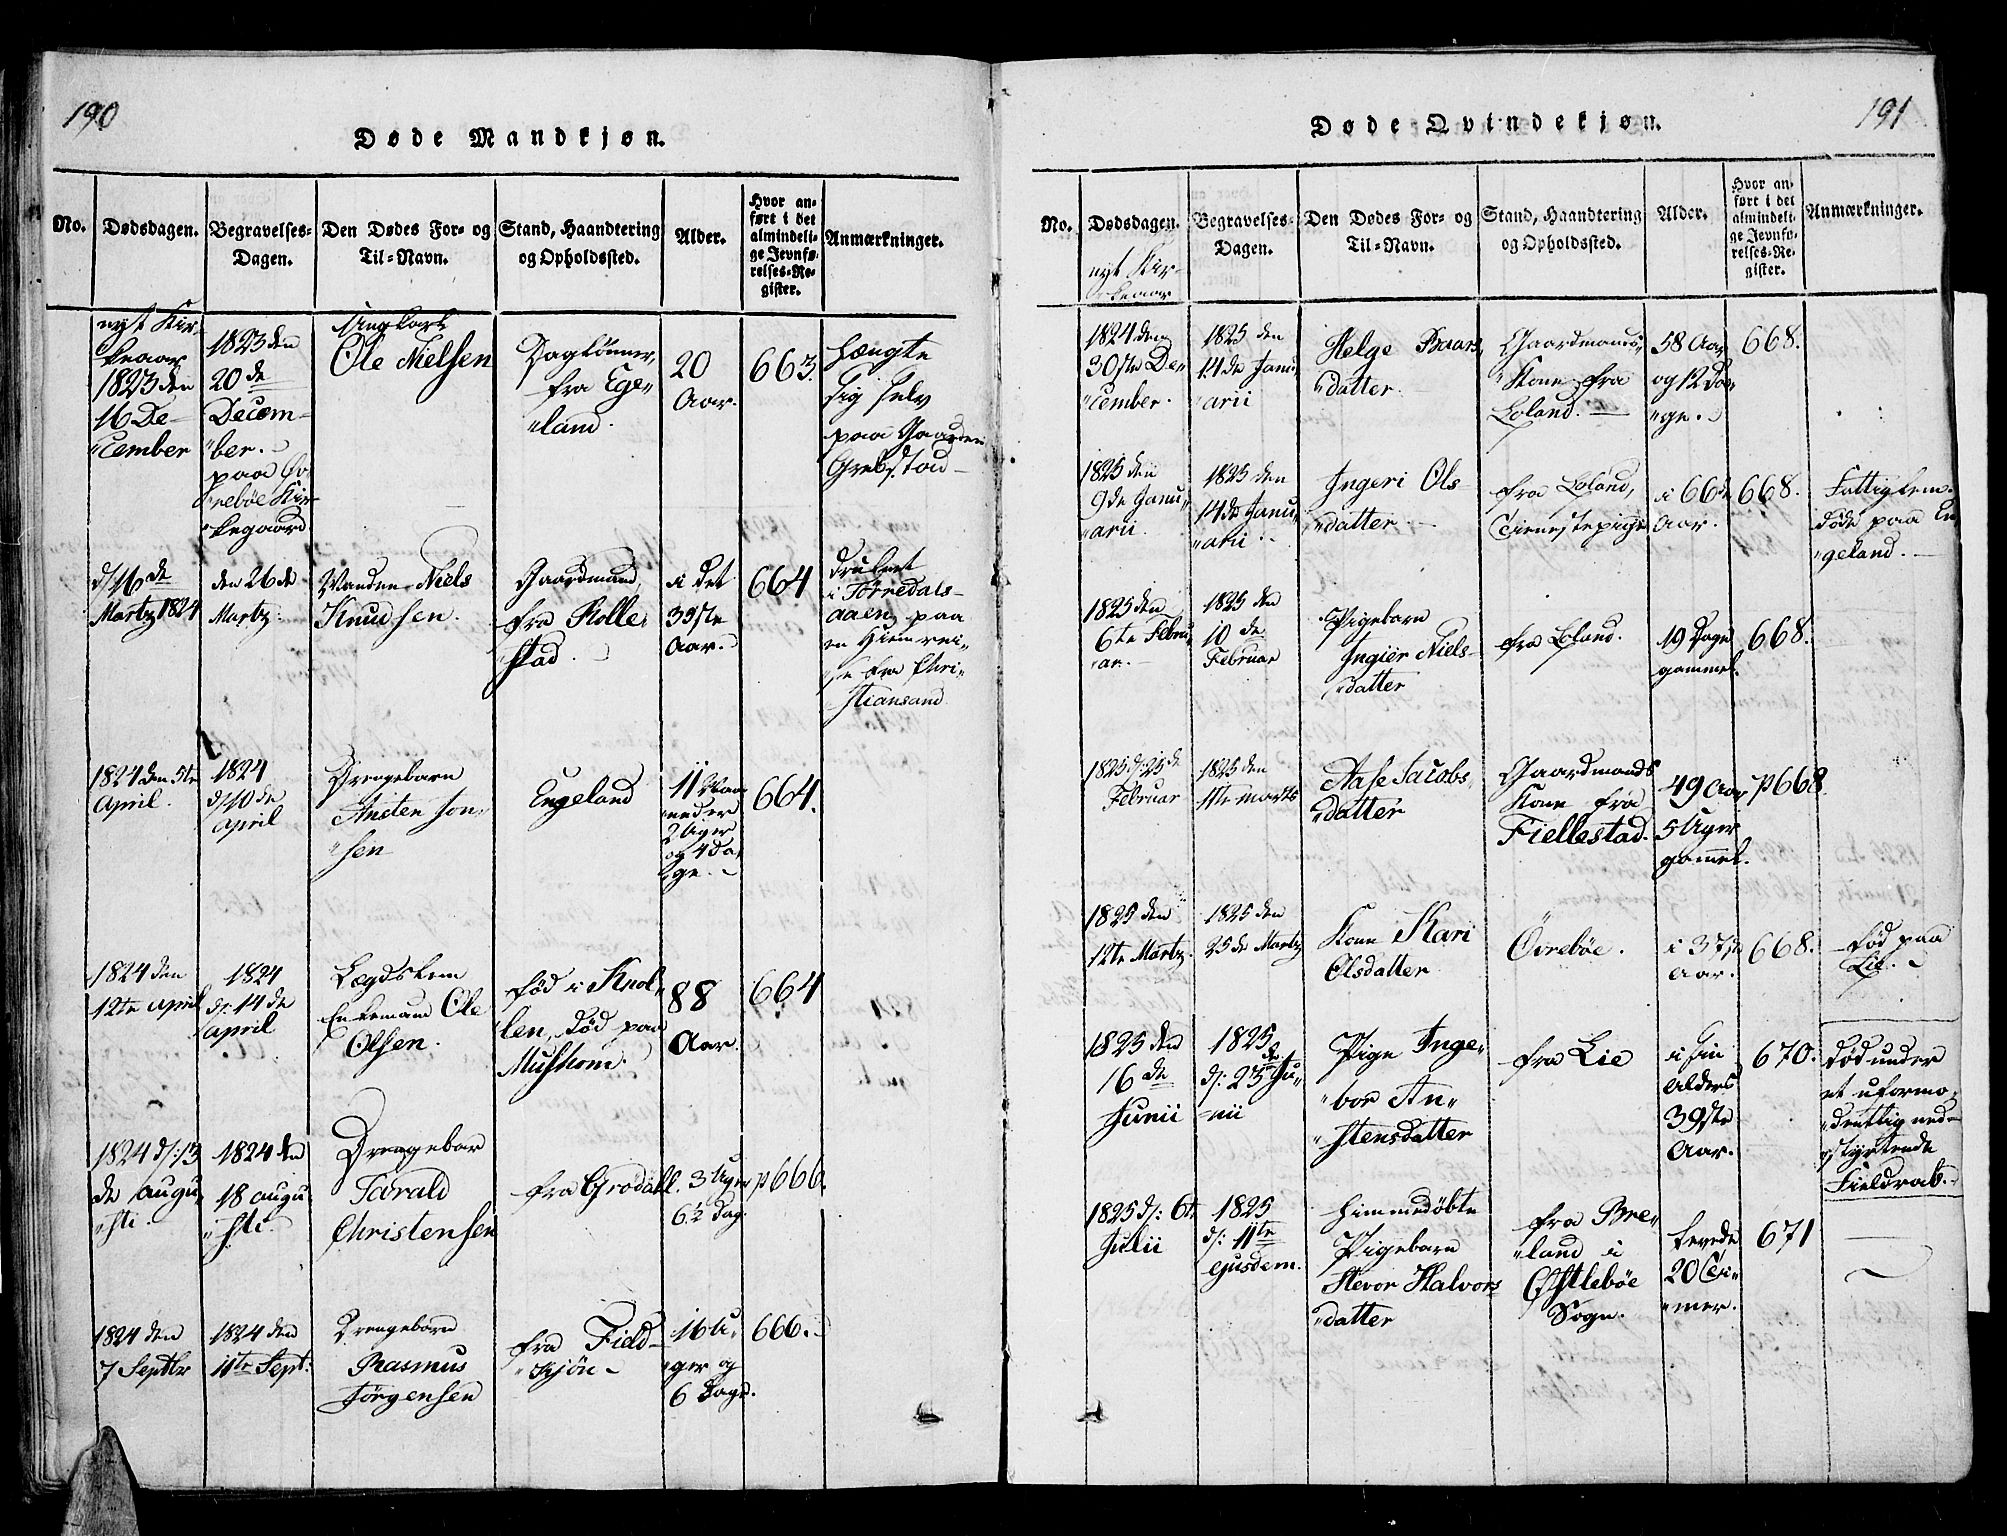 190
Døde Mandkjøn.
No.
Dødsdagen.
Begravelses-
Dagen.
Den Dødes For- og
Til-Navn.
Stand, Haandtering
og Opholdssted.
Alder.
Hvor an-
ført i det
almindeli-
ge Jevnfø-
relses-Re-
gister.
Anmærkninger.
nyt Kir-
keaar
1823 den
16 De-
cember
1823 den
20de
Decem-
ber.
paa Øv-
rebøe Kir-
kegaard
Ungkarl
Ole Nielsen
Daglønner,
fra Ege-
land.
20
Aar.
663.
hængte
sig selv
paa Gaarden
Grebstad
d/16de
Martz 1824
den 26de
Martz.
Manden Niels
Knudsen.
Gaardmand,
fra Rolle-
stad.
i det
39ste
Aar.
664
druknet
i Torredals-
aaen, paa
en Hiemrei-
se fra Chri-
stiansand
1824 den 5te
April.
1824
d/10de
April
Drengebarn
Ansten Jon-
sen
Engeland
11 Maa-
neder
2 Uger
og 4 Da-
ge.
664.
1824 den
12te April
1824
d: 14de
April
Lægdslem
Enkemand Ole
Olsen.
fød i Knol-
len, død paa
Muskom.
88
Aar.
664
1824 d: 13
de Augu-
sti.
1824 den
18 Augu-
sti.
Drengebar
Tarald
Christensen
fra Grodahl.
3 Uger
6 1/2 Dag.
p 666.
1824 den
7 Septbr
1824 den
11te Sept:
Drengebarn
Rasmus
Jørgensen
fra Field-
skjøn
16 U-
ger og
6 Dage.
666.
191
Døde Qvindekjøn.
No.
Dødsdagen.
Begravelses-
Dagen.
Den Dødes For- og
Til-Navn.
Stand, Haandtering
og Opholdssted.
Alder.
Hvor an-
ført i det
almindeli-
ge Jevnfø-
relses-Re-
gister.
Anmærkninger.
nyt Kir-
keaar
1824 den
30ste De-
cember.
1825 den
14de Janu-
arii
Helge Baars-
datter.
Gaardmands-
Kone fra
Loland.
58 Aar
og 12 Da-
ge.
668.
1825 den
9de Janu-
arii.
1825 den
14de Janu-
arii.
Ingeri Ols-
datter.
fra Loland,
Tienestepige
i 66de
Aar.
668.
Fattiglem.
døde paa En-
geland.
1825 den
6te Febru-
ar.
1825 den
10de
Februar
Pigebarn
Ingier Niels-
datter
fra Loland.
19 Dage
gammel.
668.
1825 d: 25de
Februar
1825 den
11te Marts
Aase Jacobs-
datter
Gaardmands
Kone fra
Fiellestad.
49 Aar
5 Uger
gammel.
p 668.
1825 den
12te Martz.
1825 den
25de Martz
Kone Kari
Olsdatter
Øvrebøe.
i 37te
Aar.
668.
fød paa
Lie.
1825 den
16de
Junii
1825
d: 23de Ju-
nii
Pige Inge-
bor An-
stensdatter
fra Lie
i sin
Alders
39ste
Aar.
670.
død under
et uformo-
dentlig ned-
styrtende
Fieldrab.
1825 d: 6te
Julii
1825
d: 11te
ejusdem.
Hiemmedøbte
Pigebarn
Stevor Halvors-
datter
fra Bre-
land i
Østlebøe
Sogn.
levede
20 Ti-
mer.
671